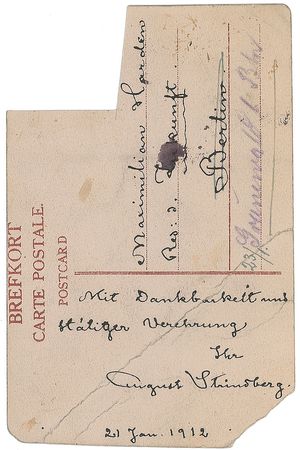 BREFKORT
CARTE POSTALE.
POSTCARD
Maximilian Harden
Red: d. Zukunft
Berlin
Mit Dankbarkeit und
stätiger Verehrung
Ihr
August Strindberg.
21 Jan. 1912